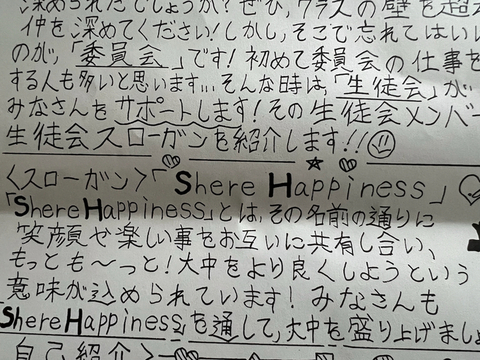 深められたでしょうか？ぜひ、クラスの壁を超え
仲を深めてください！しかし、そこで忘れてはいい
のが、「委員会」です！初めて委員会の仕事を
する人も多いと思います... そんな時は、「生徒会」が
みなさんをサポートします！その生徒会メンバー
生徒会スローガンを紹介します！！
〈スローガン〉「Shere Happiness」
「Shere Happiness」とは、その名前の通りに
笑顔や楽しい事をお互いに共有し合い、
もっとも〜っと！大中をより良くしようという
意味が込められています！みなさんも
Shere Happiness」を通して、大中を盛り上げましょ
自己紹介〉